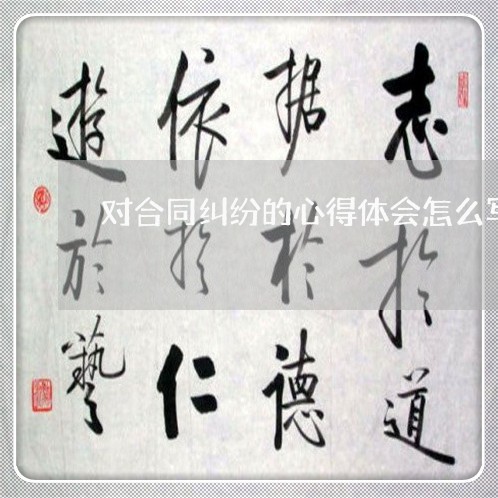 志於道
据於德
依於仁
遊於藝
对合同纠纷的心得体会怎么写